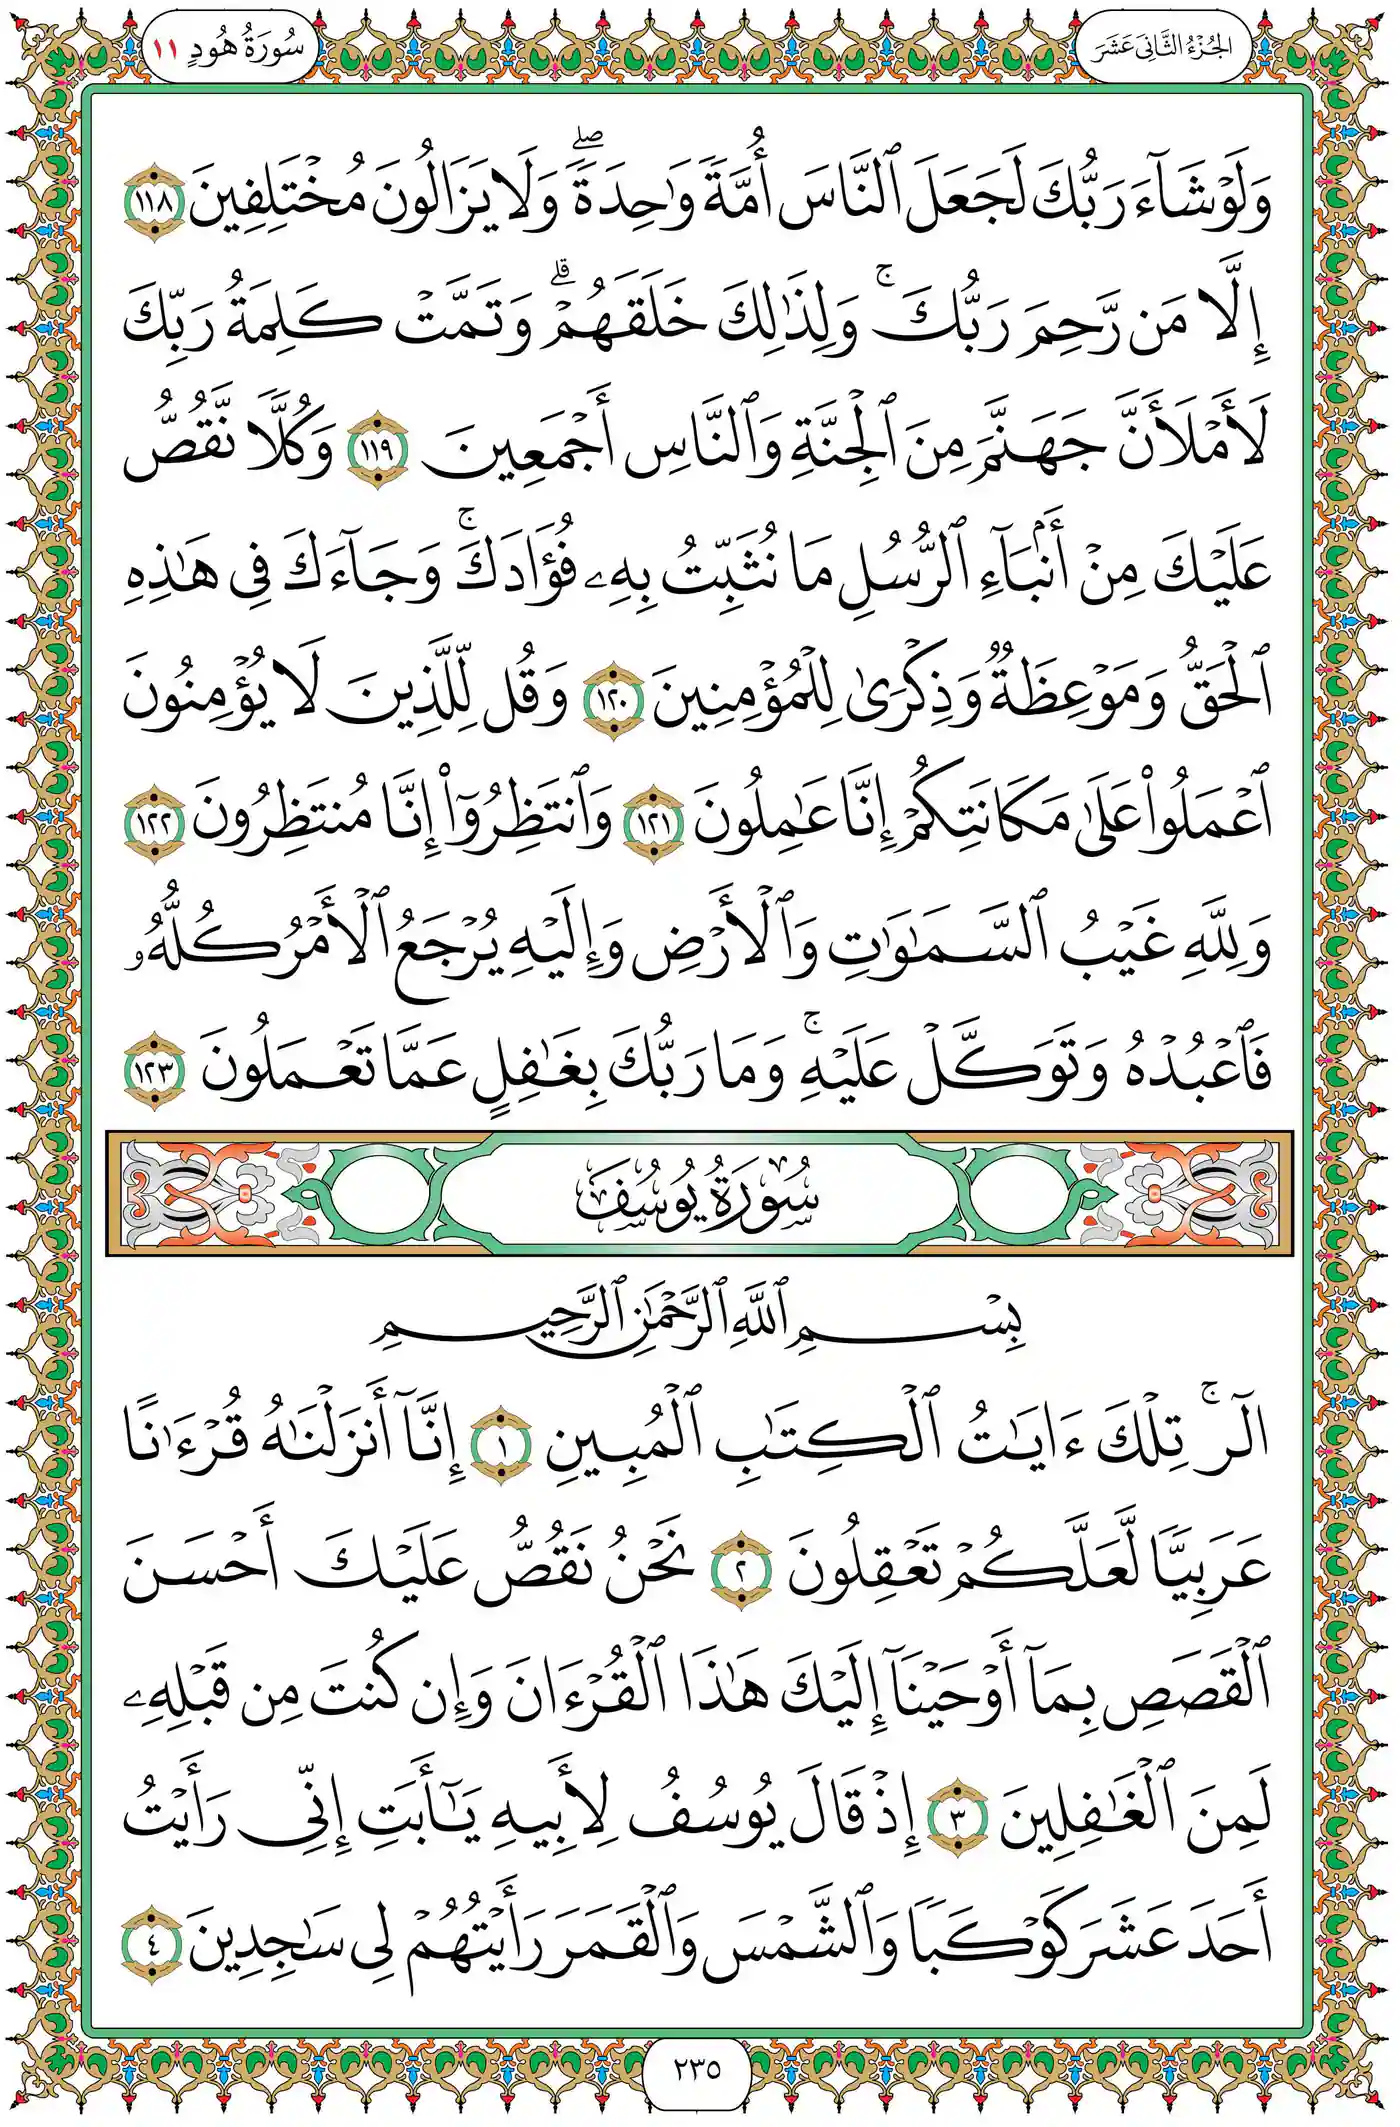 الجُزْءُ الثَّانِي عَشَرَ
سُورَةُ هُودٍ ١١
وَلَوْ شَآءَ رَبُّكَ لَجَعَلَ ٱلنَّاسَ أُمَّةً وَٰحِدَةً ۖ وَلَا يَزَالُونَ مُخْتَلِفِينَ ١١٨
إِلَّا مَن رَّحِمَ رَبُّكَ ۚ وَلِذَٰلِكَ خَلَقَهُمْ ۗ وَتَمَّتْ كَلِمَةُ رَبِّكَ
لَأَمْلَأَنَّ جَهَنَّمَ مِنَ ٱلْجِنَّةِ وَٱلنَّاسِ أَجْمَعِينَ ١١٩ وَكُلًّا نَّقُصُّ
عَلَيْكَ مِنْ أَنۢبَآءِ ٱلرُّسُلِ مَا نُثَبِّتُ بِهِۦ فُؤَادَكَ ۚ وَجَآءَكَ فِى هَٰذِهِ
ٱلْحَقُّ وَمَوْعِظَةٌ وَذِكْرَىٰ لِلْمُؤْمِنِينَ ١٢٠ وَقُل لِّلَّذِينَ لَا يُؤْمِنُونَ
ٱعْمَلُوا۟ عَلَىٰ مَكَانَتِكُمْ إِنَّا عَٰمِلُونَ ١٢١ وَٱنتَظِرُوٓا۟ إِنَّا مُنتَظِرُونَ ١٢٢
وَلِلَّهِ غَيْبُ ٱلسَّمَٰوَٰتِ وَٱلْأَرْضِ وَإِلَيْهِ يُرْجَعُ ٱلْأَمْرُ كُلُّهُۥ
فَٱعْبُدْهُ وَتَوَكَّلْ عَلَيْهِ ۚ وَمَا رَبُّكَ بِغَٰفِلٍ عَمَّا تَعْمَلُونَ ١٢٣
سُورَةُ يُوسُفَ
بِسْمِ ٱللَّهِ ٱلرَّحْمَٰنِ ٱلرَّحِيمِ
الٓر ۚ تِلْكَ ءَايَٰتُ ٱلْكِتَٰبِ ٱلْمُبِينِ ١ إِنَّآ أَنزَلْنَٰهُ قُرْءَٰنًا
عَرَبِيًّا لَّعَلَّكُمْ تَعْقِلُونَ ٢ نَحْنُ نَقُصُّ عَلَيْكَ أَحْسَنَ
ٱلْقَصَصِ بِمَآ أَوْحَيْنَآ إِلَيْكَ هَٰذَا ٱلْقُرْءَانَ وَإِن كُنتَ مِن قَبْلِهِۦ
لَمِنَ ٱلْغَٰفِلِينَ ٣ إِذْ قَالَ يُوسُفُ لِأَبِيهِ يَٰٓأَبَتِ إِنِّى رَأَيْتُ
أَحَدَ عَشَرَ كَوْكَبًا وَٱلشَّمْسَ وَٱلْقَمَرَ رَأَيْتُهُمْ لِى سَٰجِدِينَ ٤
٢٣٥